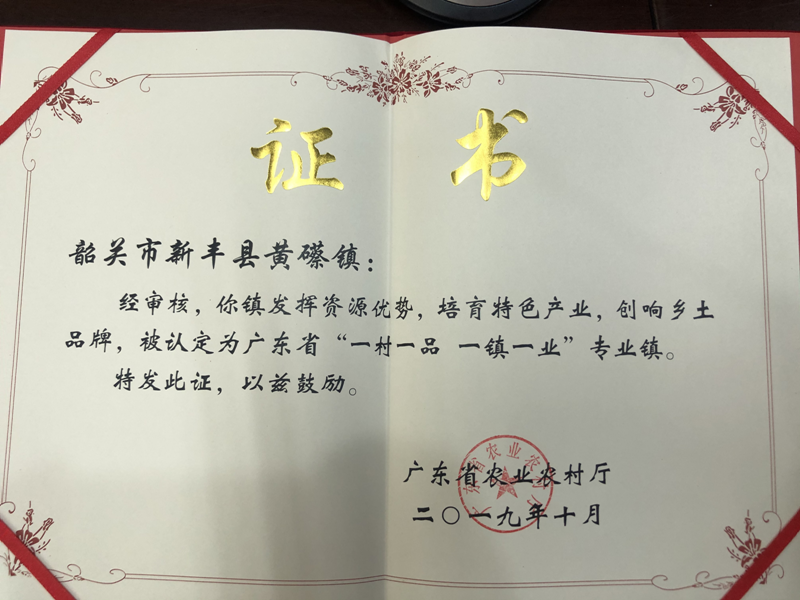 证书
韶关市新丰县黄磜镇：
经审核，你镇发挥资源优势，培育特色产业，创响乡土
品牌，被认定为广东省“一村一品 一镇一业”专业镇。
特发此证，以兹鼓励。
广东省农业农村厅
广东省农业农村厅
二〇一九年十月